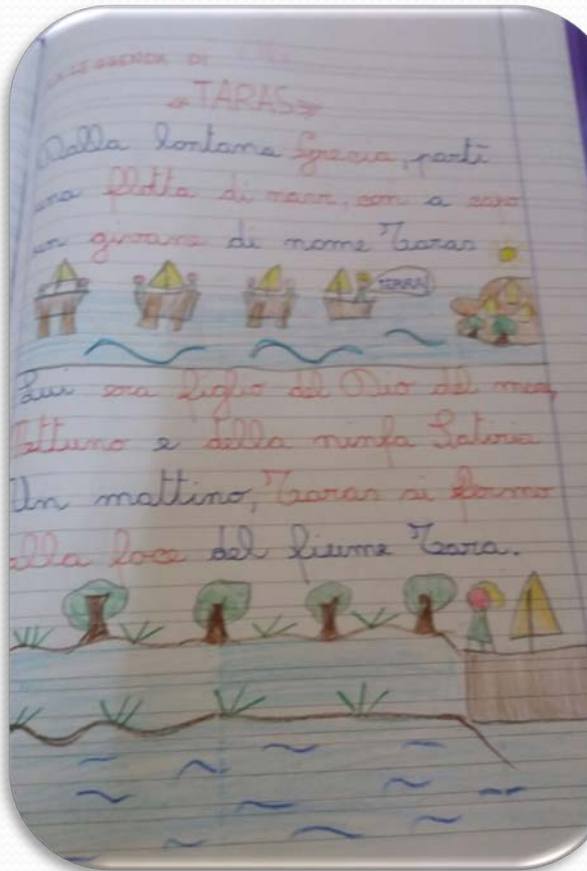 LA LEGGENDA DI
"TARAS"
Dalla lontana Grecia, partì
una flotta di navi, con a capo
un giovane di nome Taras
TERRA!
Lui era figlio del Dio del mare,
Nettuno e della ninfa Satiria
Un mattino, Taras si fermò
alla foce del fiume Tara.